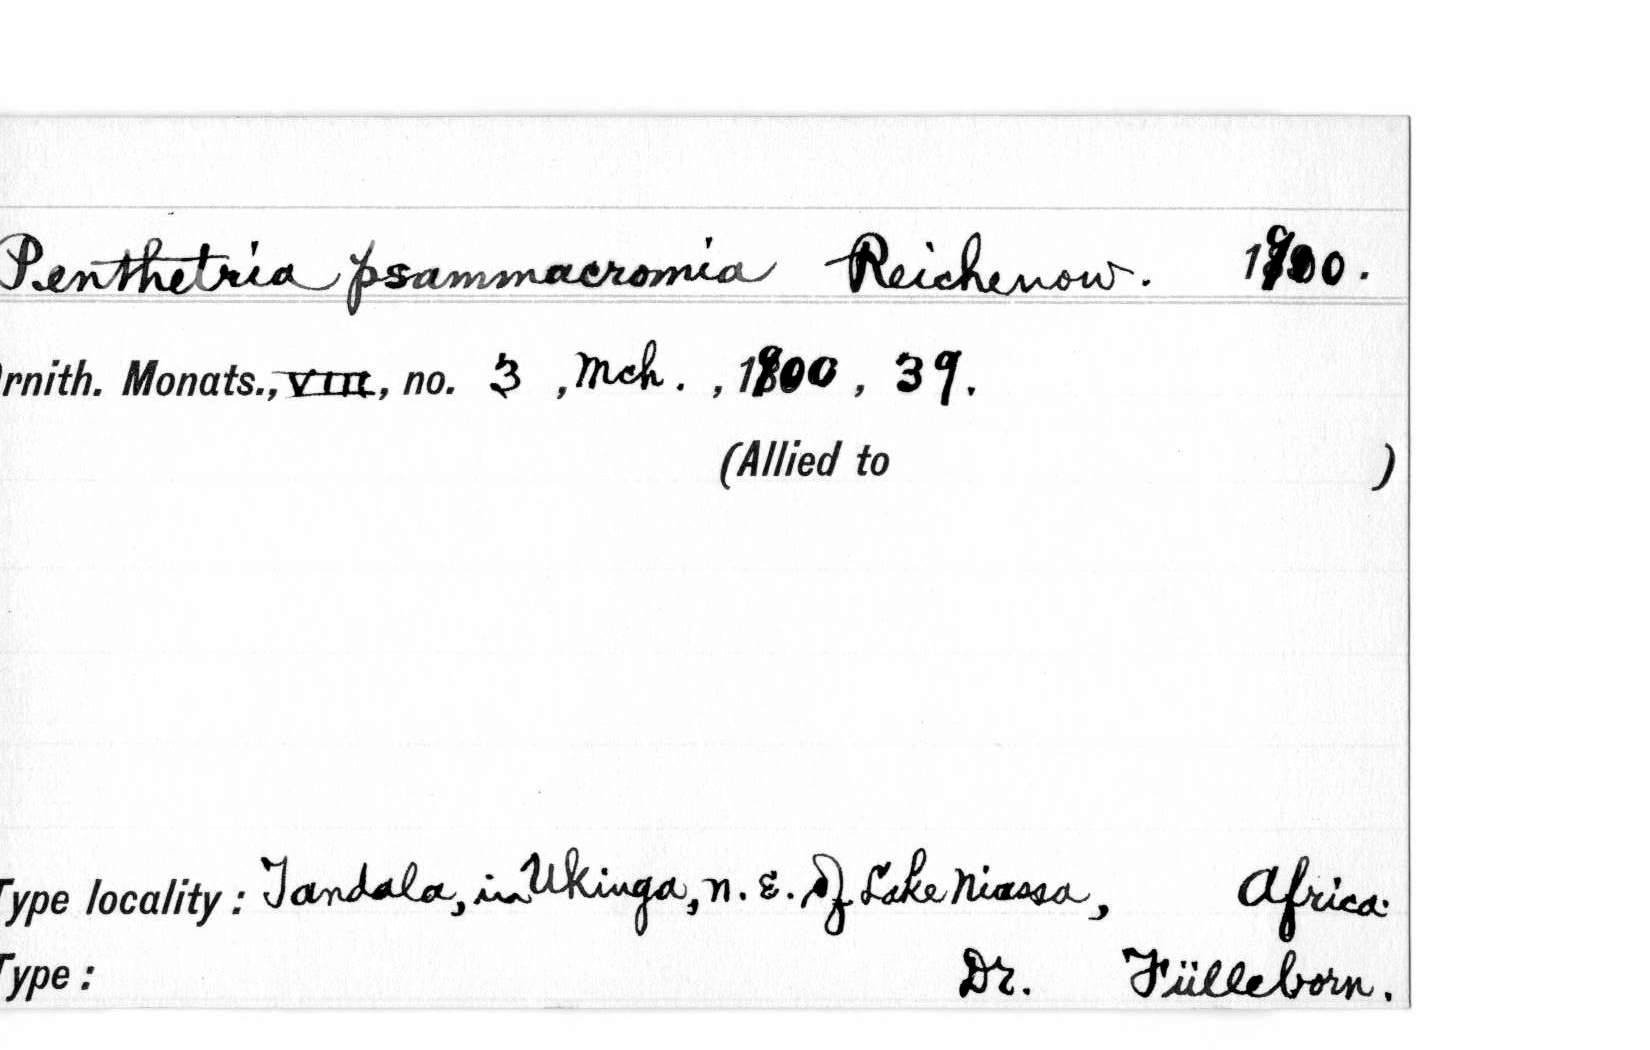 Penthetria psammacromia Reichenow. 1900.
rnith. Monats., VIII, no. 3, Mch., 1900, 39.
(Allied to )
Type locality: Tandala, in Ukinga, n. E. of Lake Niassa, Africa.
Type: Dr. Fülleborn.